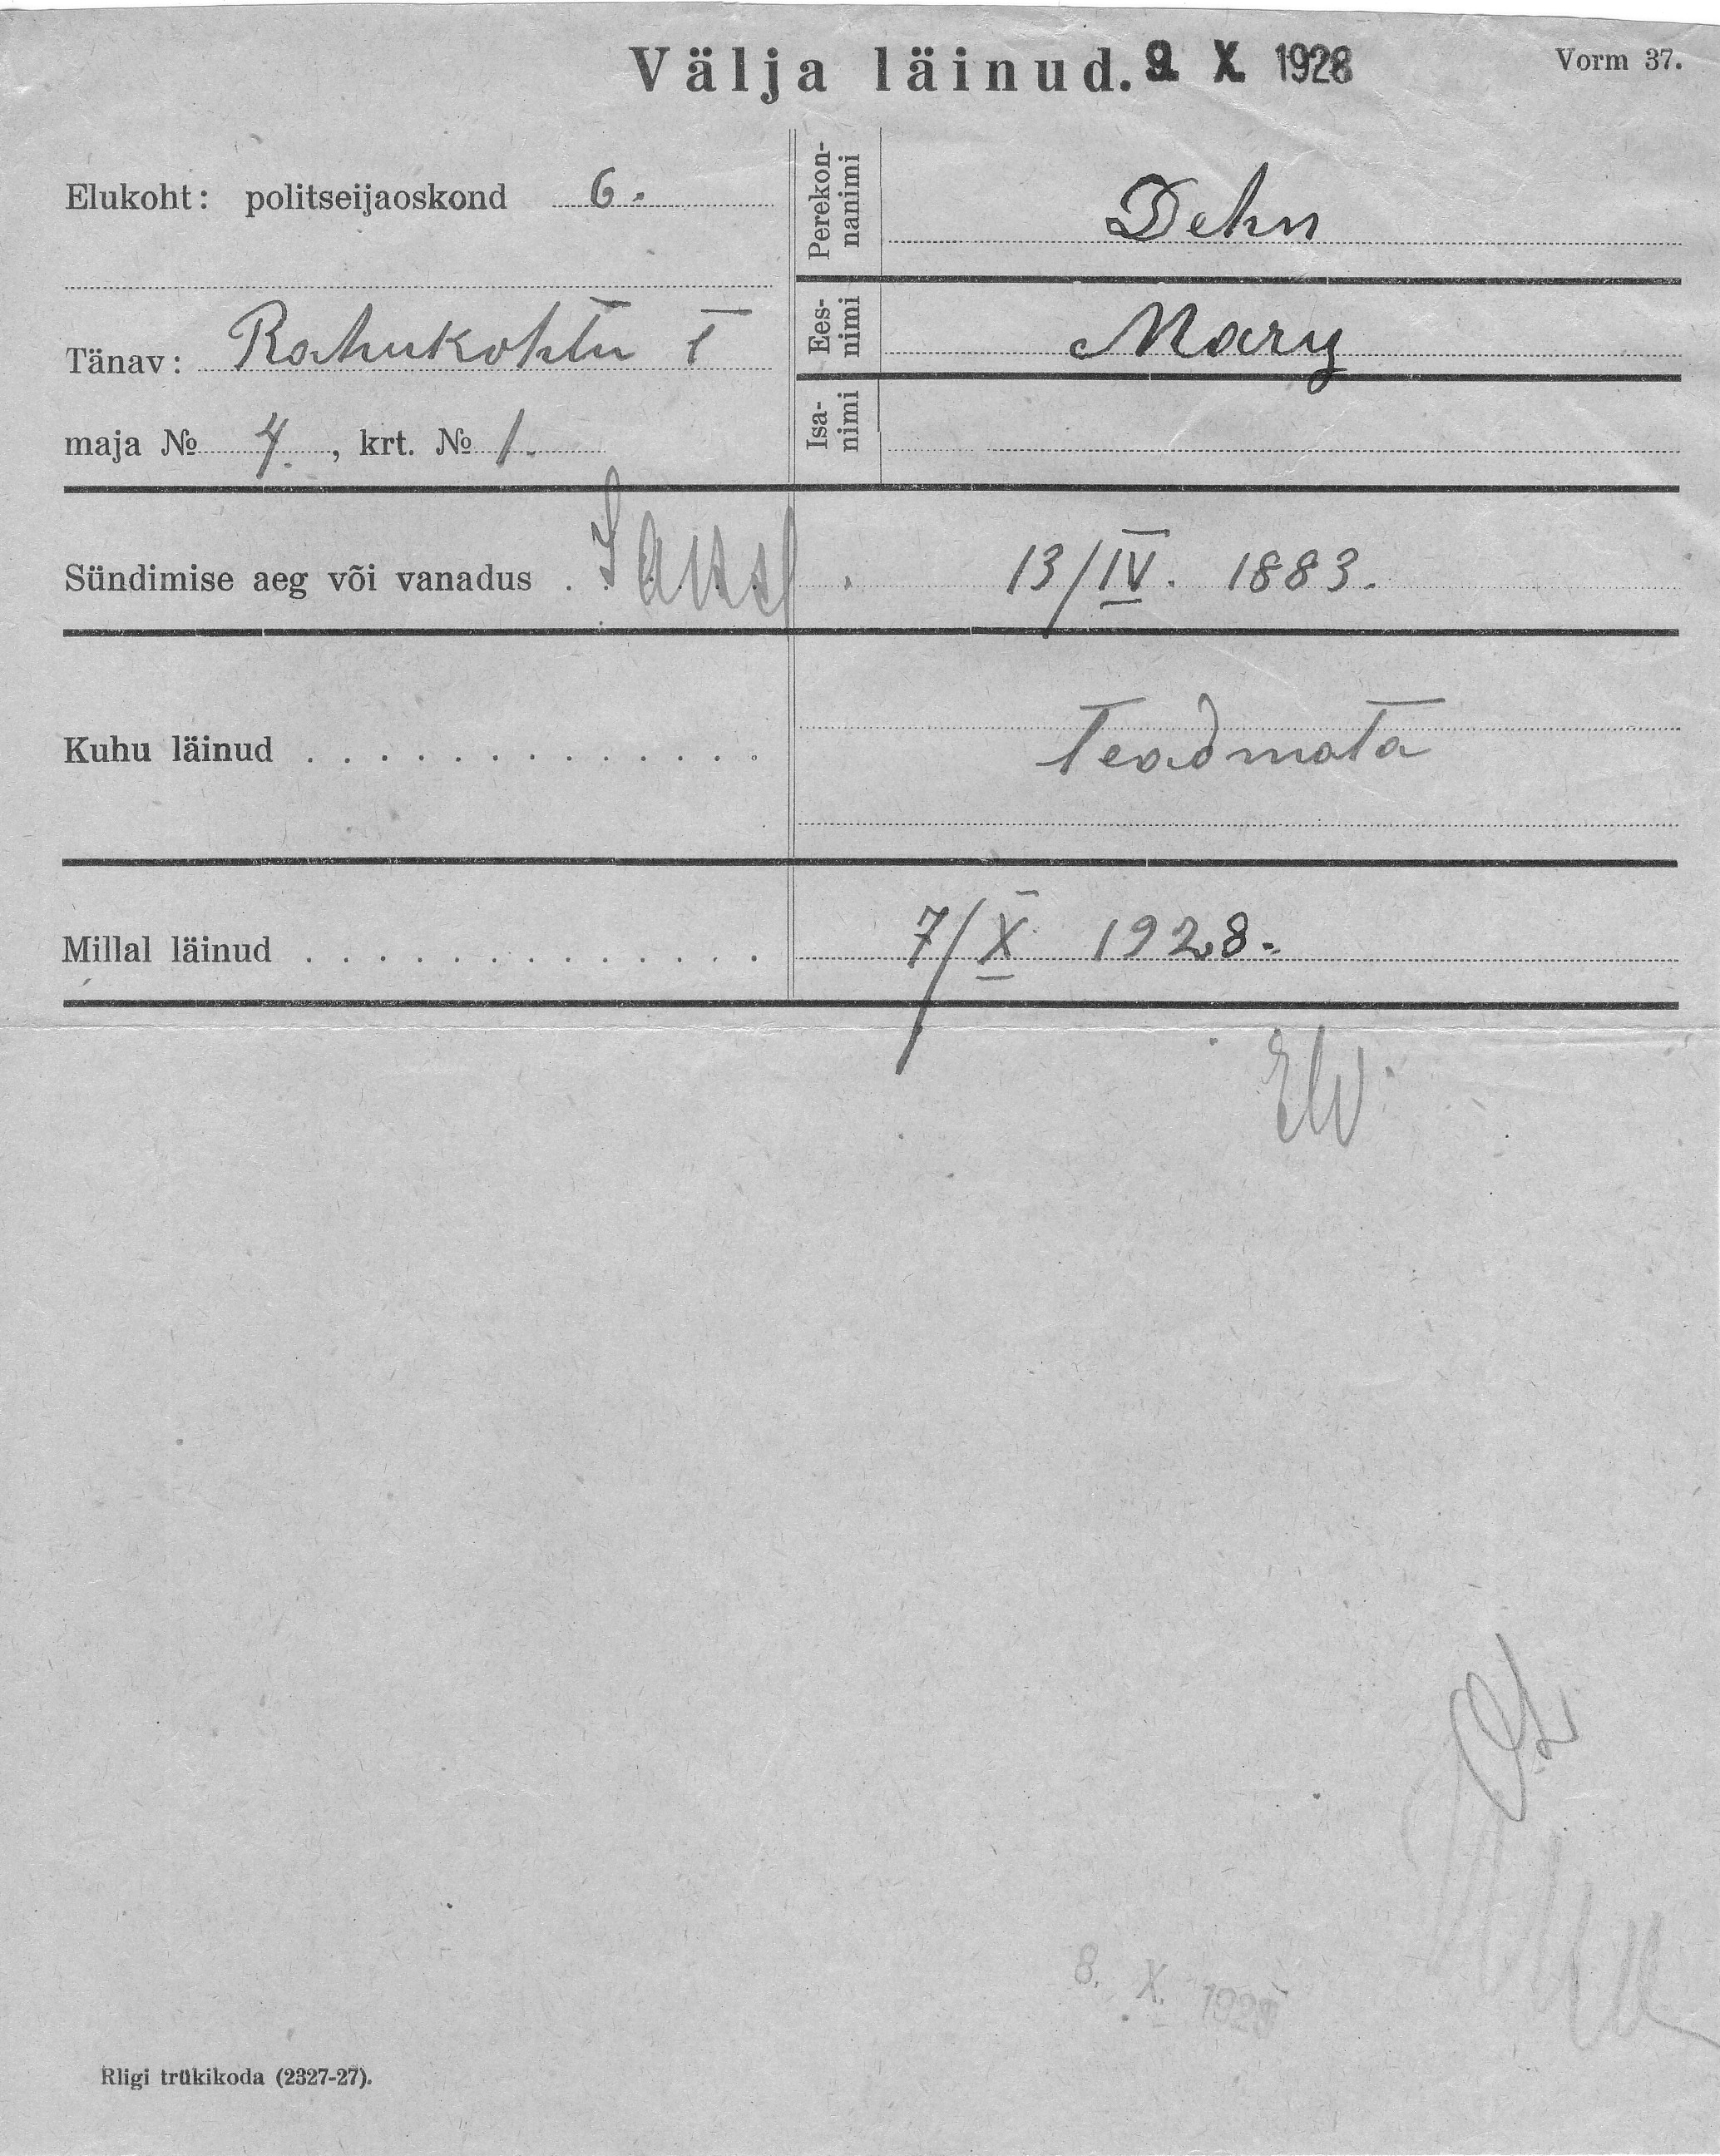 Välja läinud. 9. X. 1928
Vorm 37.
Elukoht: politseijaoskond 6.
Tänav: Rahukohtu T
maja № 4., krt. № 1.
Perekon-
nanimi
Dehn
Ees-
nimi
Mary
Isa-
nimi
Sündimise aeg või vanadus . . . 13/IV. 1883.
Kuhu läinud . . . . . . . . . . . . . . Teadmata
Millal läinud . . . . . . . . . . . . . . 7/X 1928.
8. X. 1928
Riigi trükikoda (2327-27).